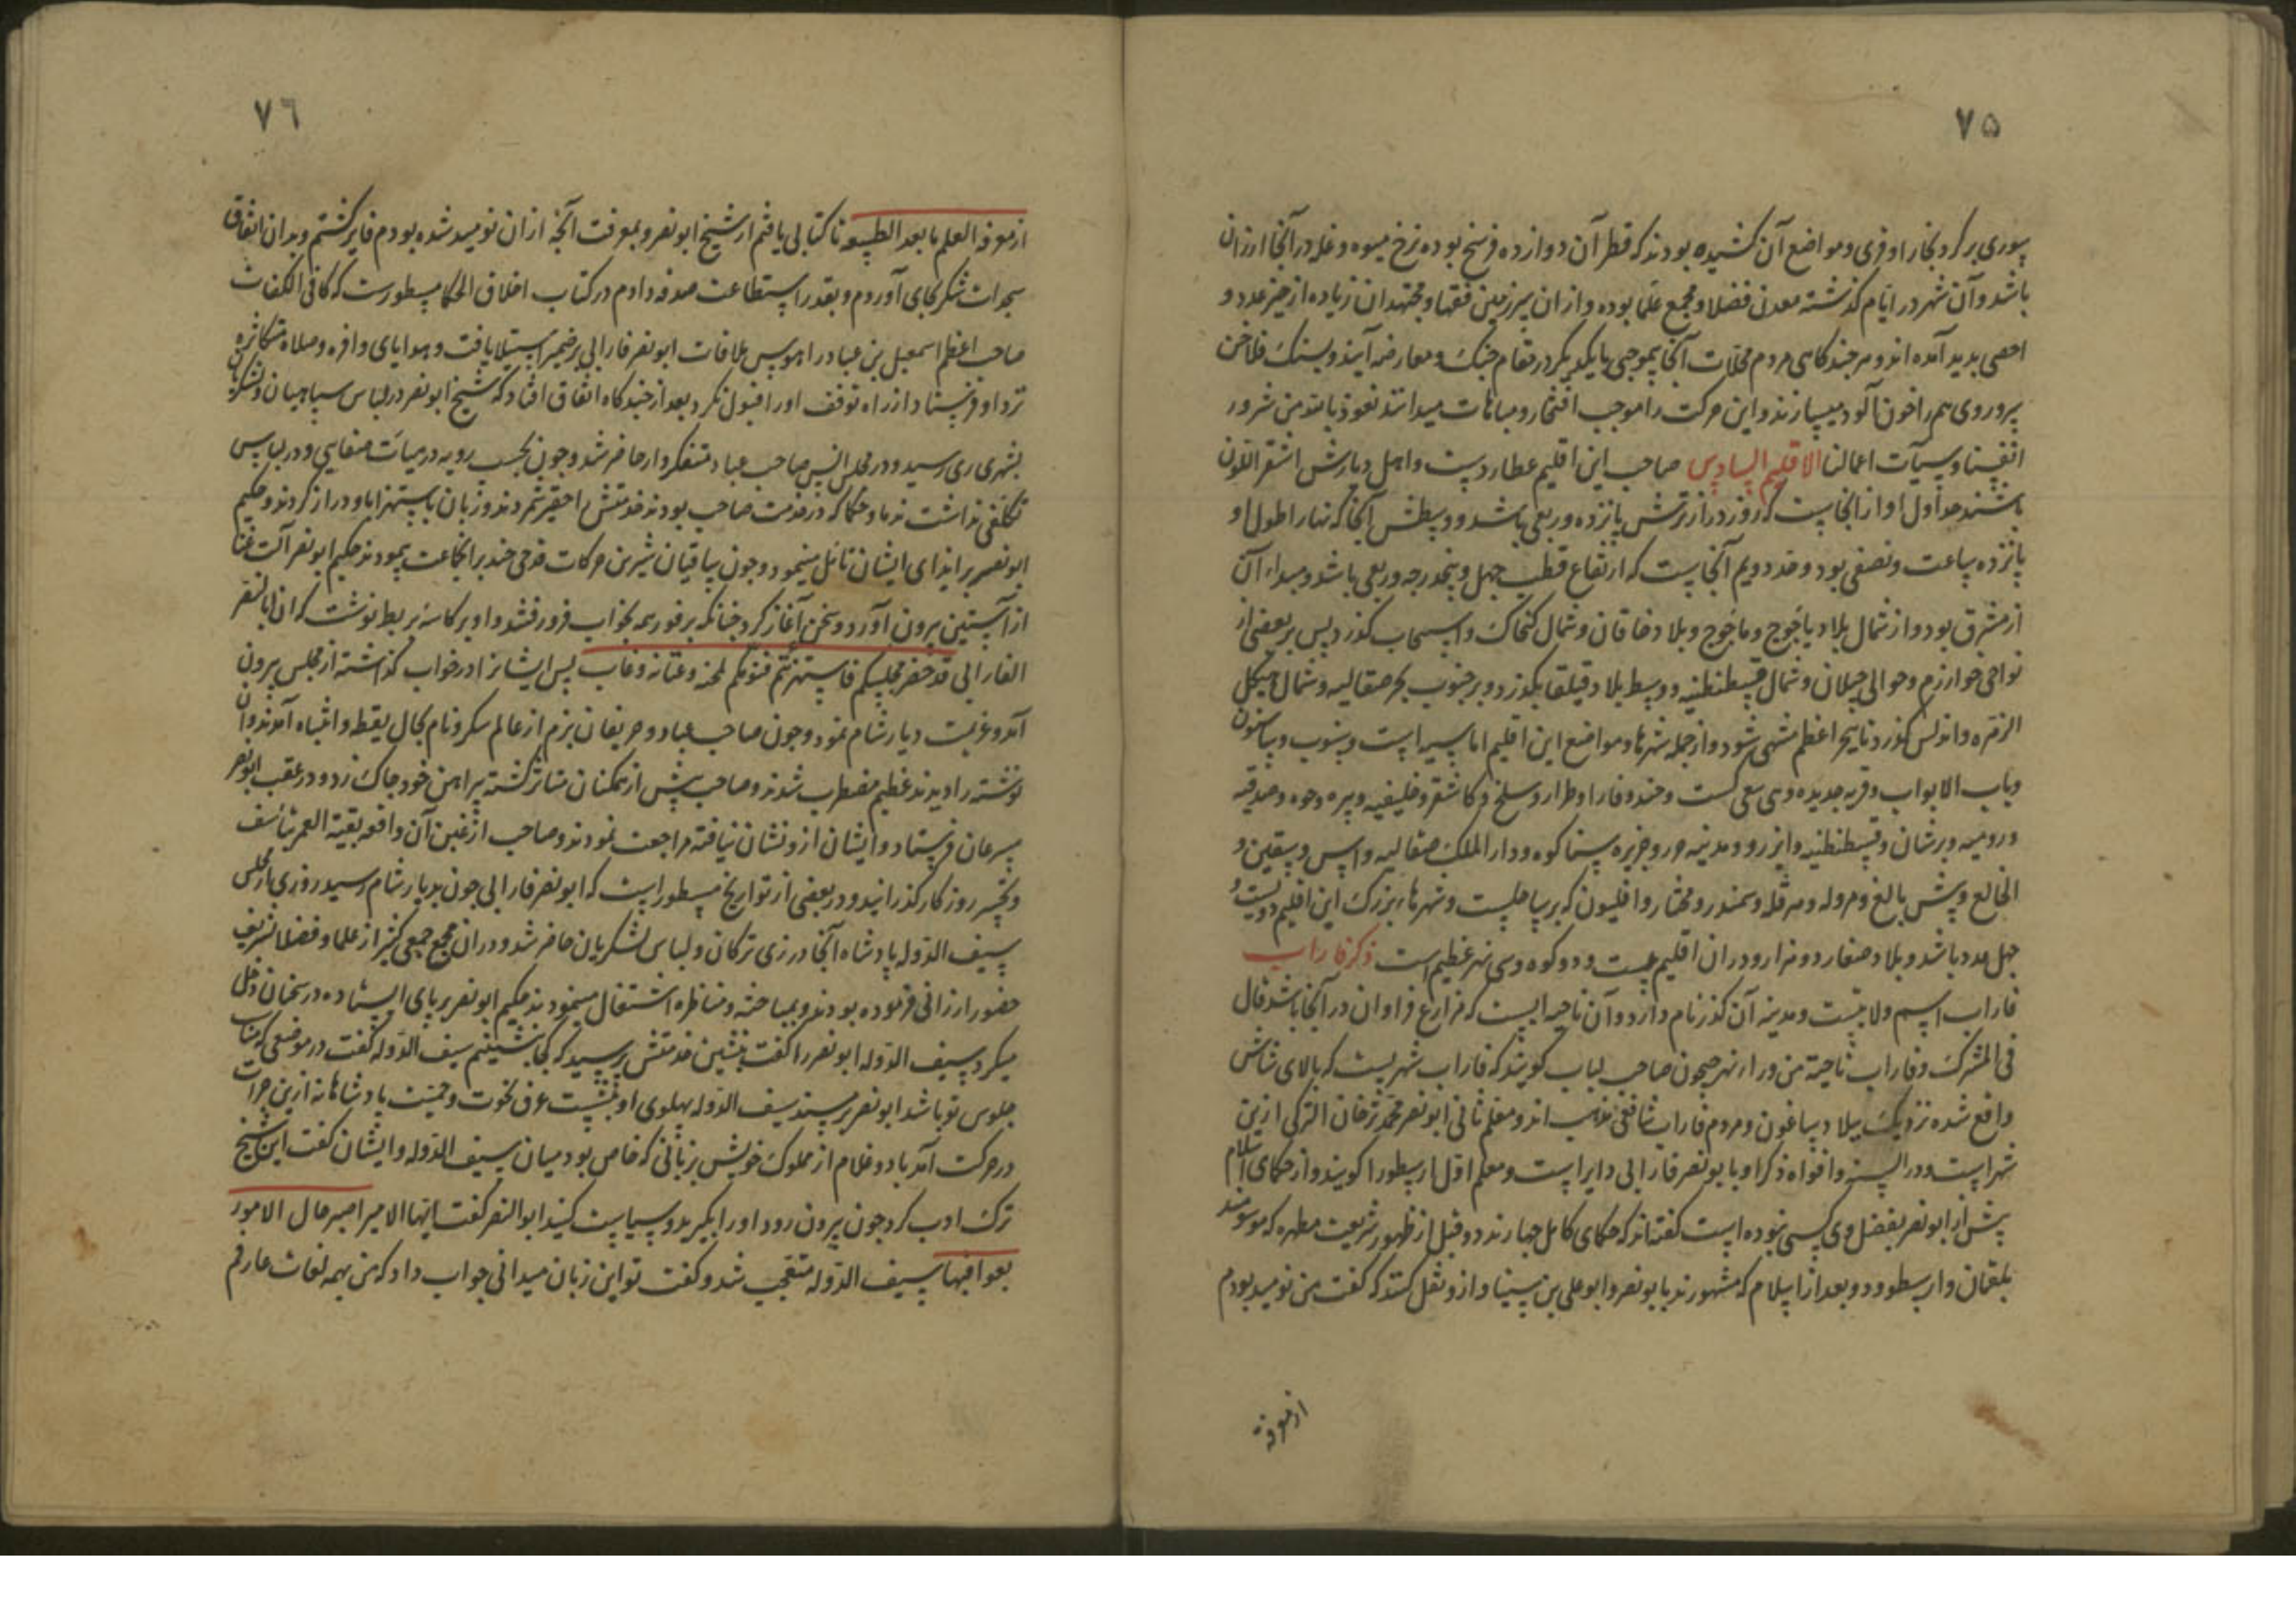 ۷۵
سوری بر گرد بخارا و قری و مواضع آن کشیده بودند که قطر آن دوازده فرسخ بوده نرخ میوه و غله در آنجا ارزان
باشد و آن شهر در ایام گذشته معدن فضلا و مجمع علما بوده و از ان سرزمین فقها و مجتهدان زیاده از حیز عدد و
احصی بدید آمده اند و هر چند کاهی مردم محلات آنجا بموجبی با یکدیگر در مقام جنک و معارضه آیند و بسنک فلاخن
سر و روی هم را خون آلود میسازند و این حرکت را موجب افتخار و مباهات میدانند نعوذ بالله من شرور
انفسنا و سیآت اعمالنا الاقلیم السادس صاحب این اقلیم عطاردست و اهل دیارش اشقر اللون
باشند حد اول او از انجاست که روز درازترش پانزده و ربعی باشد و وسطش آنجا که نهار اطول او
پانزده ساعت و نصفی بود و حد دویم آنجاست که ارتفاع قطب چهل و پنجدرجه و ربعی باشد و مبداء آن
از مشرق بود و از شمال بلاد یاجوج و ماجوج و بلاد خاقان و شمال کنجاک و اسبیجاب کذرد پس بر بعضی از
نواحی خوارزم و حوالی جیلان و شمال قسطنطنیه و وسط بلاد قیلقا بکذرد و بر جنوب بحر صقالیه و شمال هیکل
الزهره و اندلس کذرد تا ببحر اعظم منتهی شود و از جمله شهرها و مواضع این اقلیم
و باب الابواب و قریه جدیده و فاراو طراز و سلخ و کاشغر و خلیفیه
و رومیه و برشان و قسطنطنیه و مدینه و جزیره و دار الملک صقالیه
که بر ساحلست و شهرهاء بزرک این اقلیم دویست و
چهل عدد باشد و بلاد صغار دو هزار و در ان اقلیم بیست و دو کوه و سی نهر عظیم است ذکر فاراب
فاراب اسم ولایتست و مدینه آن کذر نام دارد و آن ناحیه ایست که مزارع فراوان در آنجا باشد قال
فی المشترک و فاراب ناحیة من وراء نهر جیحون صاحب لباب کوید که فاراب شهریست که بالای شاش
واقع شده نزدیک ببلاد بلاساغون و مردم فاراب شافعی مذهب اند و معلم ثانی ابو نصر محمد ترخان الترکی ازین
شهر است و در السنه و افواه ذکر او بابو نصر فارابی دایر است و معلم اول ارسطو را کویند و از حکمای اسلام
پیش از ابو نصر بفضل وی کسی نبوده است کفته اند که حکمای کامل چهارند دو قبل از ظهور شریعت مطهره که موسومند
بلقمان و ارسطو و دو بعد از اسلام که مشهورند بابو نصر و ابو علی بن سینا و ازو نقل کنند که کفت من نومید بودم
از معرفة
۷٦
از معرفة العلم ما بعد الطبیعه تا کتابی یافتم از شیخ ابو نصر و بمعرفت آنچه از ان نومید شده بودم فایز کشتم و بدان اتفاق
سجدات شکر بجای آوردم و بقدر استطاعت صدقه دادم در کتاب اخلاق الحکما مسطورست که کافی الکفات
صاحب اعظم اسمعیل بن عباد را هوس ملاقات ابو نصر فارابی بر ضمیر استیلا یافت و هدایای وافره و صلاة متکاثره
نزد او فرستاد از راه توقف او را قبول نکرد بعد از چند کاه اتفاق افتاد که شیخ ابو نصر در لباس سپاهیان و لشکریان
بشهر ری رسید و در مجلس انس صاحب عباد متنفکروار حاضر شد و چون بحسب رویه در هیأت صفایی و در لباس
تکلفی نداشت ندما و حکما که در خدمت صاحب بودند خدمتش را حقیر شمردند و زبان باستهزا باو دراز کردند و حکیم
ابو نصر بر ایذای ایشان تامل مینمود و چون ساقیان شیرین حرکات قدحی چند بر انجماعت پیمودند حکیم ابو نصر آلت غنا
از آستین بیرون آورد و سخن آغاز کرد چنانکه بر فور همه بخواب فرو رفتند و او بر کاسه بربط نوشت که ان ابا نصر
الفارابی قد حضر مجلسکم فاستهزئتم فنومکم لمحنه و غنائه و غاب پس ایشانرا در خواب کذاشته از مجلس بیرون
آمد و عزیمت دیار شام نمود و چون صاحب عباد و حریفان بزم از عالم سکر و نام بحال یقظ و انتباه آمدند و آن
نوشته را دیدند عظیم مضطرب شدند و صاحب بیش از همکنان متاثر کشته پیراهن خود چاک زد و در عقب ابو نصر
سرعان فرستاد و ایشان ازو نشان نیافته مراجعت نمودند و صاحب از غبن آن واقعه بقیة العمر بتاسف
و تحسر روز کار کذرانید و در بعضی از تواریخ مسطور است که ابو نصر فارابی چون بدیار شام رسید روزی بمجلس
سیف الدوله پادشاه آنجا در زی ترکان و لباس لشکریان حاضر شد و در ان مجمع جمعی کثیر از علما و فضلا تشریف
حضور ارزانی فرموده بودند و بمباحثه و مناظره اشتغال مینمودند حکیم ابو نصر بر پای ایستاده در سخنان دخل
میکرد سیف الدوله ابو نصر را کفت بنشین خدمتش پرسید که کجا بنشینم سیف الدوله کفت در موضعی که مناسب
جلوس تو باشد ابو نصر بر مسند سیف الدوله پهلوی او بنشست عرق نخوت و حمیت پادشاهانه ازین جرات
در حرکت آمد با دو غلام از مملوک خویش بزبانی که خاص بود میان سیف الدوله و ایشان کفت این شیخ
ترک ادب کرد چون بیرون رود او را بکیرید و سیاست کنید ابو النصر کفت ایها الامیر اصبر فان الامور
بعواقبها سیف الدوله متعجب شد و کفت تو این زبان میدانی جواب داد که من بهمه لغات عارفم